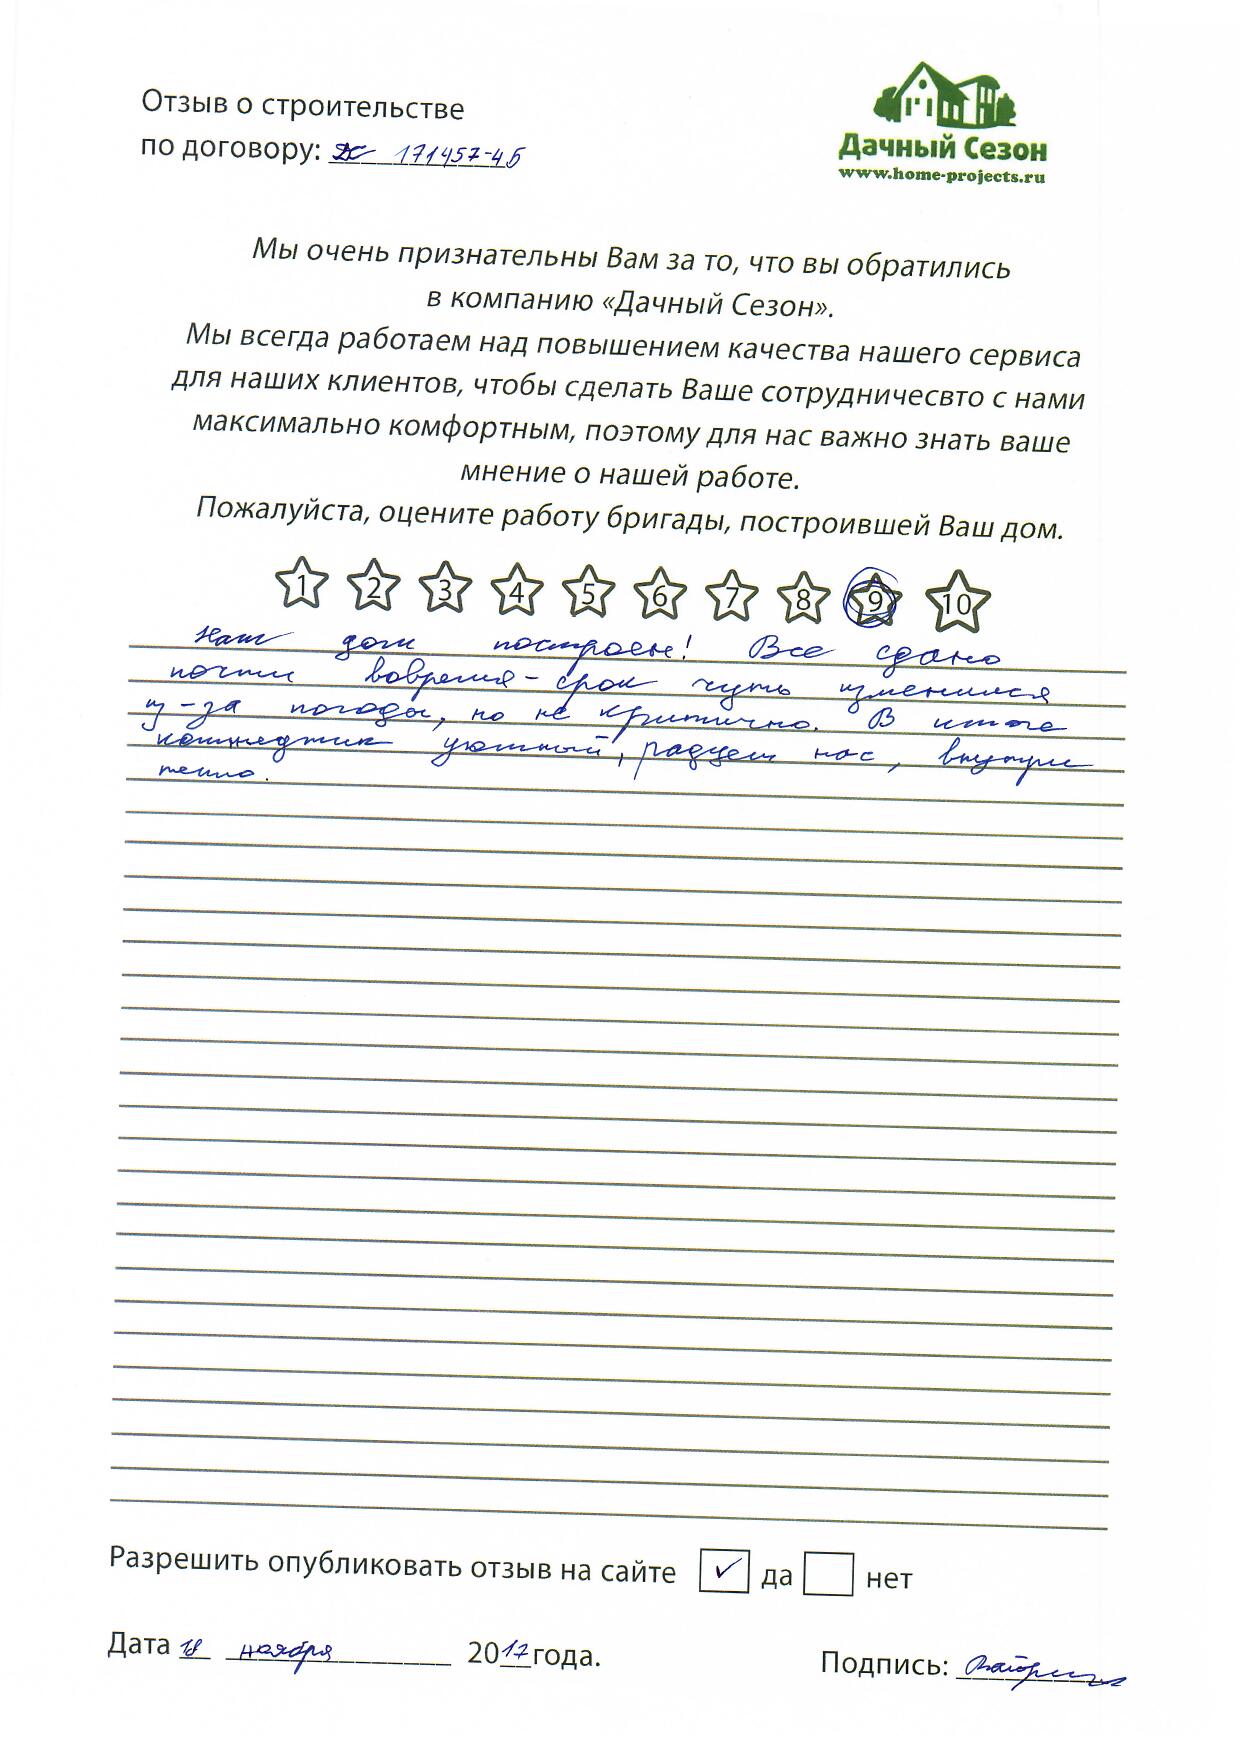 Отзыв о строительстве
по договору: ДС 171457-45
Дачный Сезон
www.home-projects.ru
Мы очень признательны Вам за то, что вы обратились
в компанию «Дачный Сезон».
Мы всегда работаем над повышением качества нашего сервиса
для наших клиентов, чтобы сделать Ваше сотрудничесвто с нами
максимально комфортным, поэтому для нас важно знать ваше
мнение о нашей работе.
Пожалуйста, оцените работу бригады, построившей Ваш дом.
1 2 3 4 5 6 7 8 9 10
Наш дом построен! Все сдано
почти вовремя - срок чуть изменился
из-за погоды, но не критично. В итоге
коттеджик уютный, радует нас, внутри
тепло.
Разрешить опубликовать отзыв на сайте ✓ да нет
Дата 18 ноября 2017 года.
Подпись: